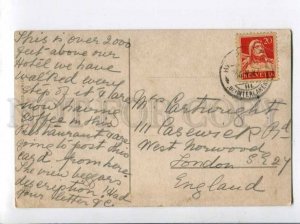 This is over 2000
feet above our
Hotel we have
walked every
step of it & are
now having
coffee in this
Restaurant & are
going to post this
card from here
The view beggars
description I had
your letter &c.
20
HELVETIA
Mrs Cartwright
111 Casewick Rd
West Norwood
London S.E. 27
England